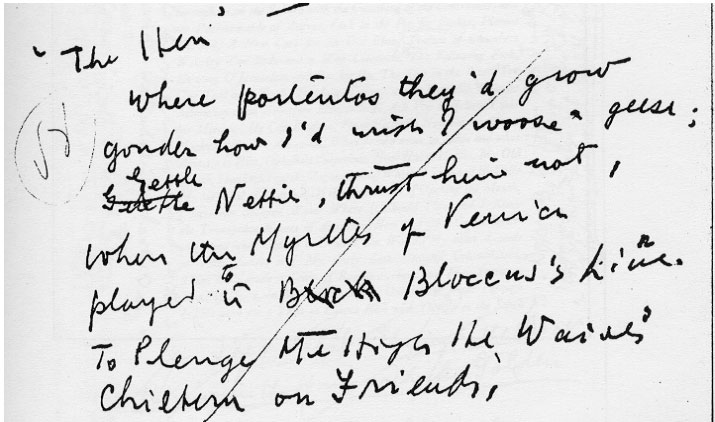 "The Hen" —
where portentos they'd grow
gonder how I'd wish I woose a geese;
Gettle Nettie, thrust him not,
When the Myrtles of Venice
played to Bloccus's Line.
To Plenge Me High He Waives
Chiltern on Friends,